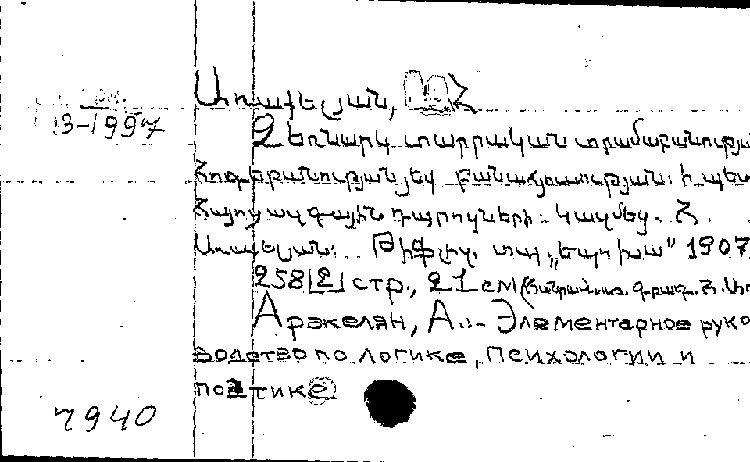 13-1997
Առաքելյան, Հ
Ձեռնարկ տարրական տրամաբանությա
հոգեբանության եվ բանասրտության: Ի պետ
հայոց ազգային դպրոցների: Կազմեց. Հ.
Առաքելյան: Թիֆլիս. տպ. „Էպոխա" 1907
258|2| стр., 21 см
Аракелян, А.- Элементарное руко
водство по логике, психологии и
поэтике
7940